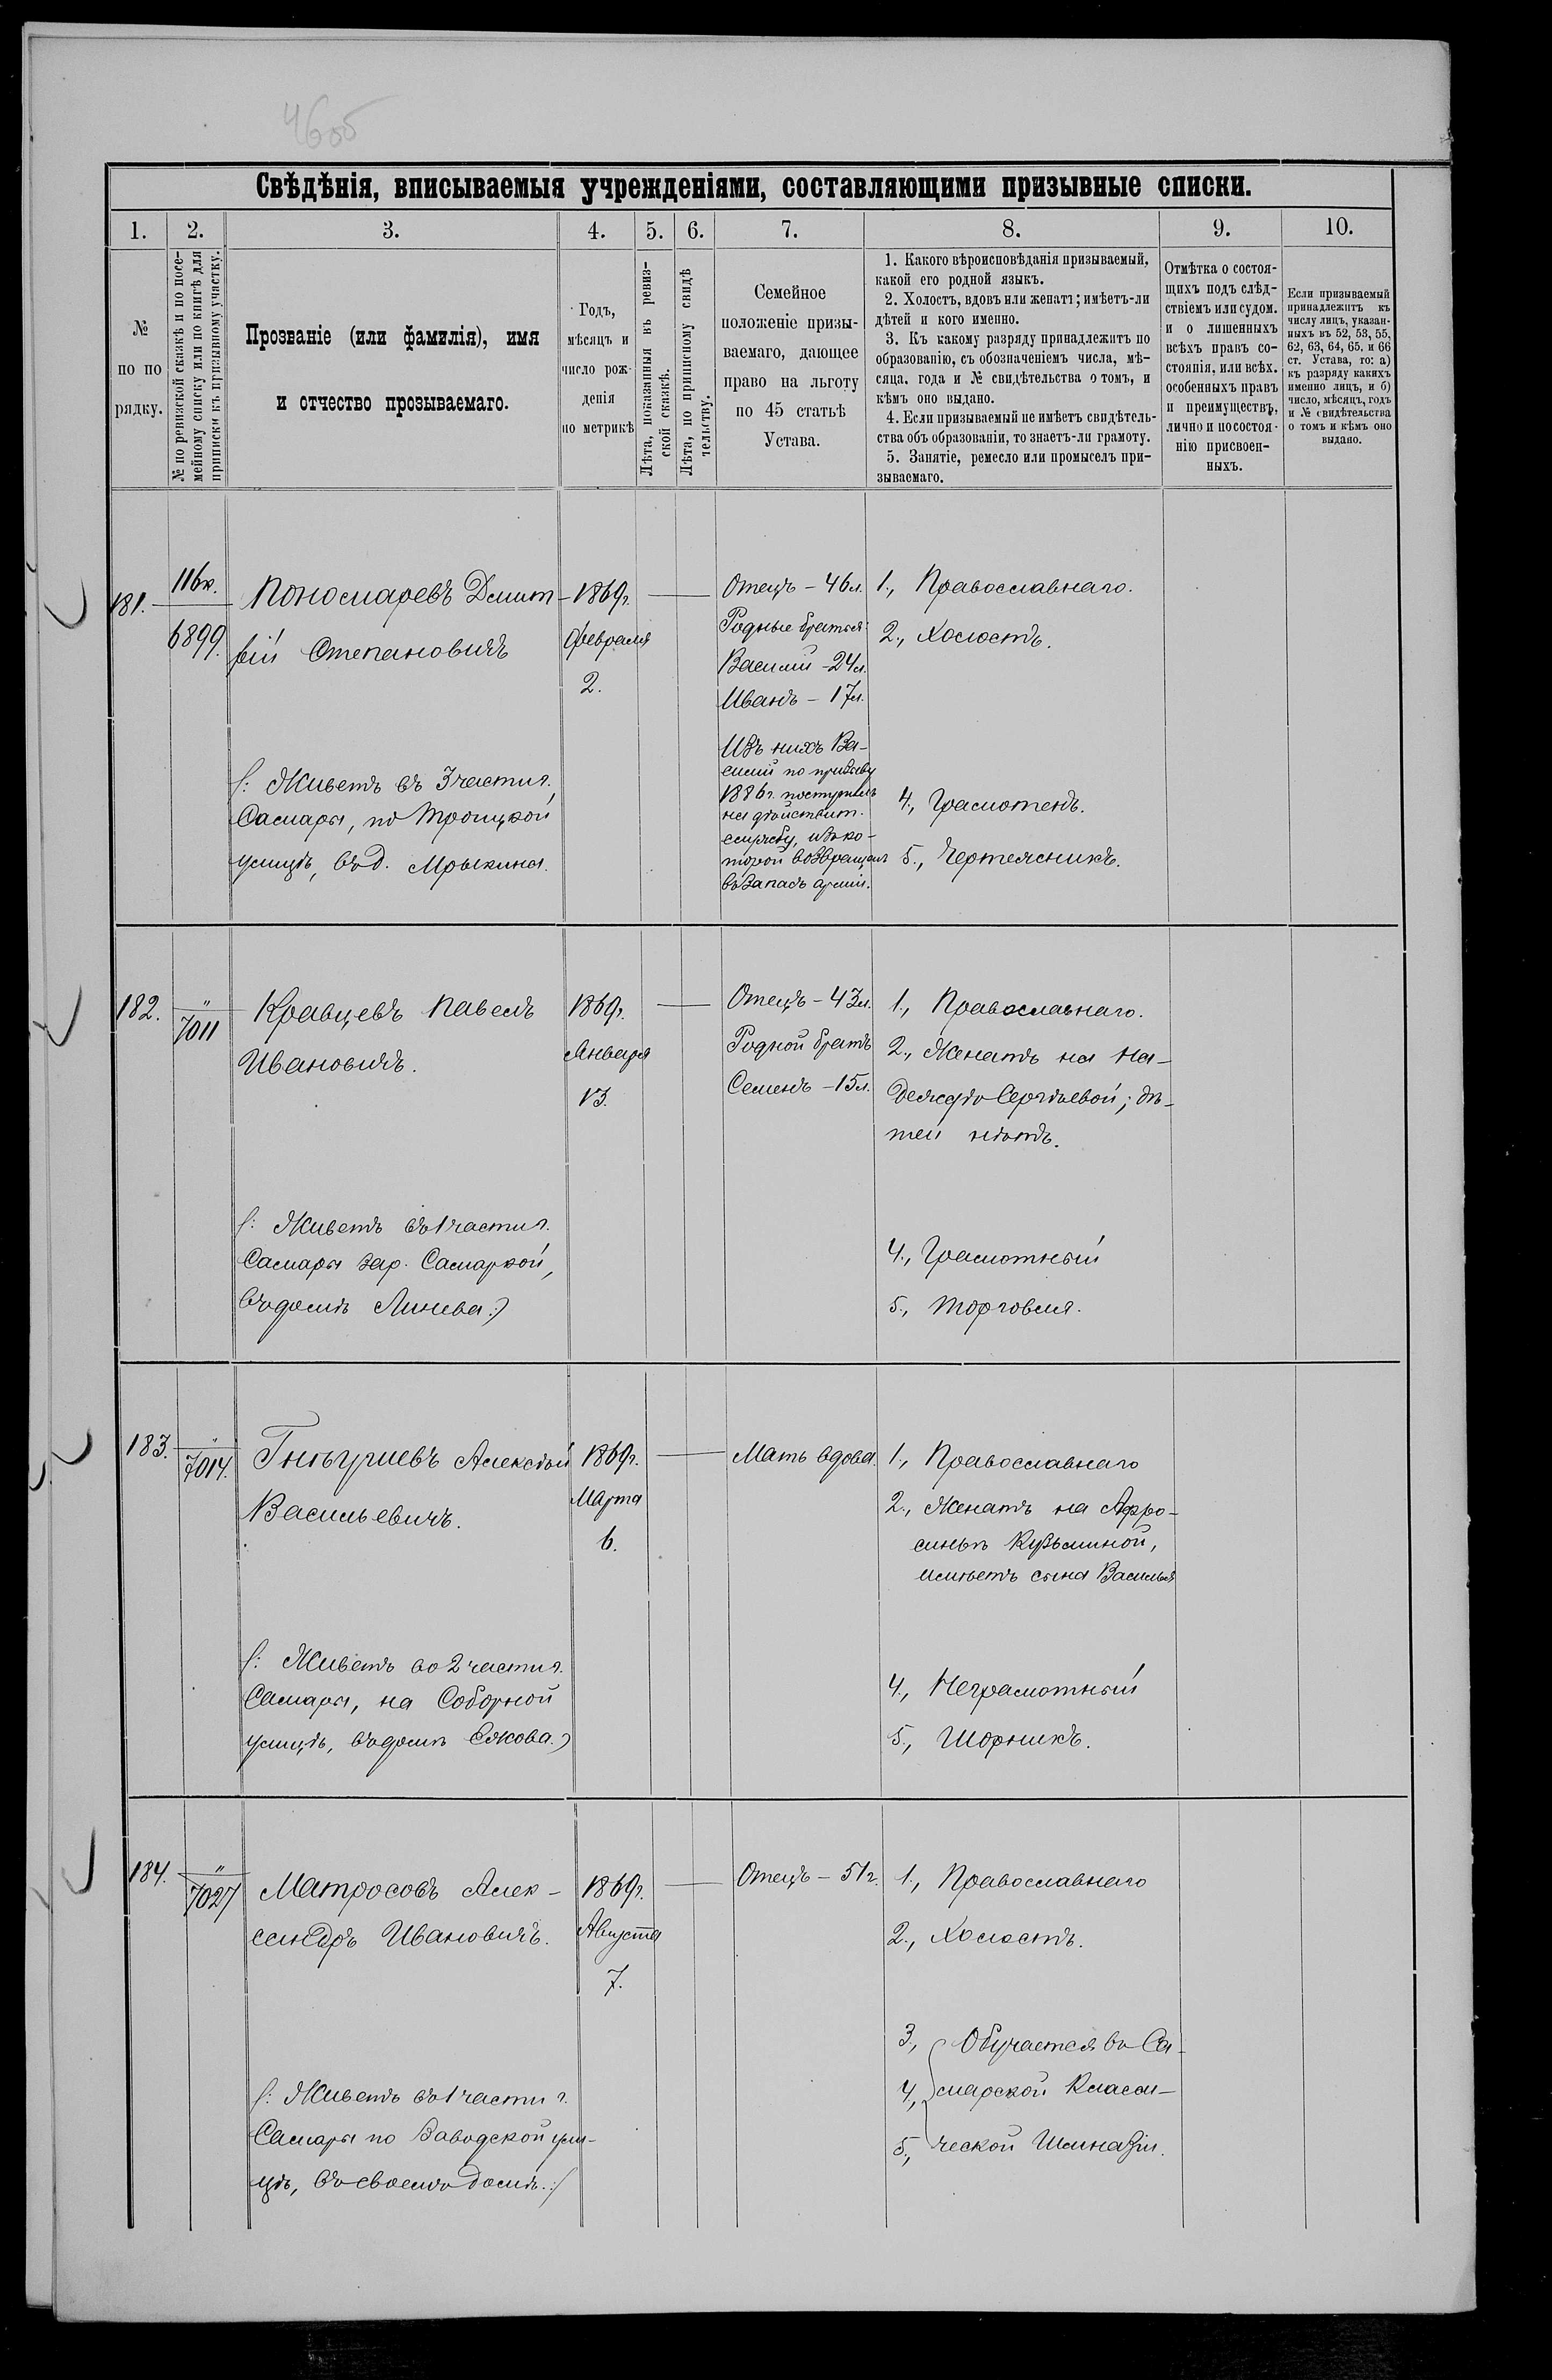 46об
Свѣдѣнія, вписываемыя учрежденіями, составляющими призывные списки.
1. 2. 3. 4. 5. 6. 7. 8. 9. 10.
№
по по
рядку.
№ по ревизской сказкѣ и по посе-
мейному списку или по книгѣ для
приписки къ призывному участку.
Прозваніе (или фамилія), имя
и отчество прозываемаго.
Годъ,
мѣсяцъ и
число рож-
денія
по метрикѣ
Лѣта, показанныя въ ревиз-
ской сказкѣ.
Лѣта, по приписному свидѣ
тельству.
Семейное
положеніе призы-
ваемаго, дающее
право на льготу
по 45 статьѣ
Устава.
1. Какого вѣроисповѣданія призываемый,
какой его родной языкъ.
2. Холостъ, вдовъ или женатъ; имѣетъ-ли
дѣтей и кого именно.
3. Къ какому разряду принадлежитъ по
образованію, съ обозначеніемъ числа, мѣ-
сяца, года и № свидѣтельства о томъ, и
кѣмъ оно выдано.
4. Если призываемый не имѣетъ свидѣтель-
ства объ образованіи, то знаетъ-ли грамоту.
5. Занятіе, ремесло или промыселъ при-
зываемаго.
Отмѣтка о состоя-
щихъ подъ слѣд-
ствіемъ или судом.
и о лишенныхъ
всѣхъ правъ со-
стоянія, или всѣх.
особенныхъ правъ
и преимуществъ,
лично и по состоя-
нію присвоен-
ныхъ.
Если призываемый
принадлежитъ къ
числу лицъ, указан-
ныхъ въ 52, 53, 55,
62, 63, 64, 65. и 66
ст. Устава, то: а)
къ разряду какихъ
именно лицъ, и б)
число, мѣсяцъ, годъ
и № свидѣтельства
о томъ и кѣмъ оно
выдано.
181.
116к.
6899.
Пономаревъ Дмит-
рій Степановичъ
/: Живетъ въ 3 части г.
Самары, по Троицкой
улицѣ, въ д. Мрыкина.
1869г.
Февраля
2.
Отецъ – 46л.
Родные братья:
Василій – 24л.
Иванъ – 17л.
Изъ нихъ Ва-
силій по призыву
1886г. поступилъ
на дѣйствит.
службу, изъ ко-
торой возвращенъ
въ запасъ арміи.
1., Православнаго.
2., Холостъ.
4., Грамотенъ.
5., Чертежникъ.
182.
"
7011
Кравцевъ Павелъ
Ивановичъ.
/: Живетъ въ 1 части г.
Самары за р. Самаркой,
въ домѣ Линева :)
1869г.
Января
13.
Отецъ – 43л.
Родной братъ
Семенъ – 15л.
1., Православнаго.
2., Женатъ на На-
деждѣ Сергѣевой; дѣ-
тей нѣтъ.
4., Грамотный
5., Торговля.
183.
"
7014.
Алексѣй
Васильевичъ.
/: Живетъ во 2 части г.
Самары, на Соборной
улицѣ, въ домѣ :)
1869г.
Марта
6.
Мать вдова.
1., Православнаго
2., Женатъ на Афро-
синьѣ Кузьминой,
имѣетъ сына Василья
4., Неграмотный
5., Шорникъ.
184.
"
7027
Матросовъ Алек-
сандръ Ивановичъ.
/: Живетъ въ 1 части г.
Самары по Заводской ули-
цѣ, въ своемъ домѣ. :/
1869г.
Августа
7.
Отецъ – 51г.
1., Православнаго
2., Холостъ.
3., Обучается въ Са-
4., марской Класси-
5., ческой Гимназіи.